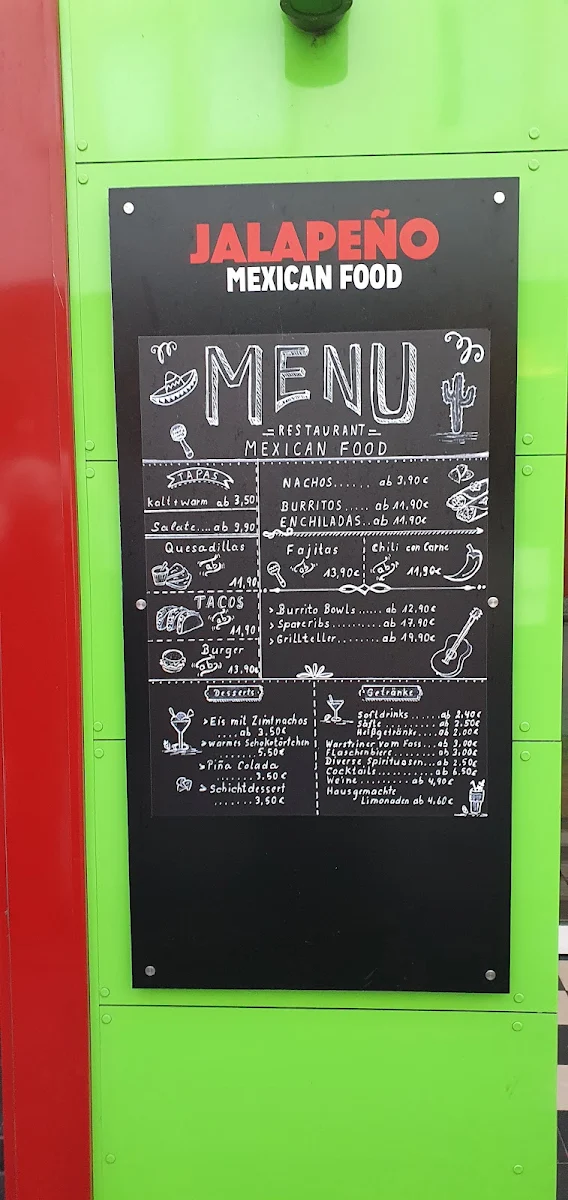 JALAPEÑO
MEXICAN FOOD
MENU
RESTAURANT
MEXICAN FOOD
TAPAS
kalt+warm ab 3,50
Salate....ab 9,90
Quesadillas
ab
11,90
TACOS
ab
11,90
Burger
ab
13,90€
NACHOS...... ab 3,90€
BURRITOS..... ab 11,90€
ENCHILADAS..ab 11,90€
Fajitas
ab
13,90€
Chili con Carne
ab
11,90€
> Burrito Bowls..... ab 12,90€
> Spareribs...... ab 17,90€
> Grillteller........ ab 19,90€
Desserts
> Eis mit Zimtnachos
....ab 3,50€
> warmes Schokotörtchen
........ 5,50€
> Piña Colada
........ 3,50€
> Schichtdessert
....... 3,50€
Getränke
Softdrinks......ab 2,40€
Säfte.......ab 2,50€
Heißgetränke....ab 2,00€
Warsteiner vom Fass...ab 3,00€
Flaschenbier.....ab 3,00€
Diverse Spirituosen...ab 2,50€
Cocktails..........ab 6,50€
Weine.......... ab 4,90€
Hausgemachte
Limonaden ab 4,60€